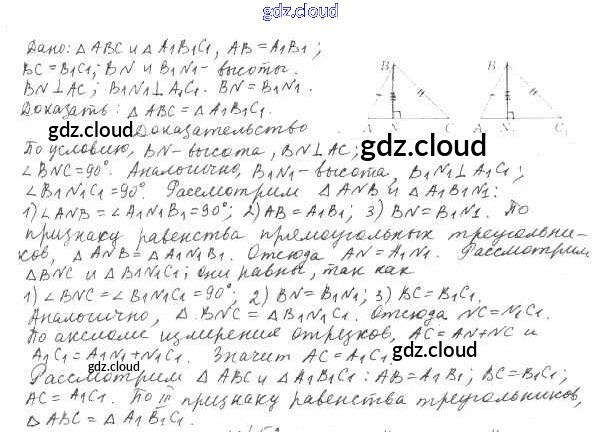 gdz.cloud
Дано: △ABC и △A1B1C1, AB = A1B1;
BC = B1C1; BN и B1N1 - высоты.
BN ⊥ AC; B1N1 ⊥ A1C1. BN = B1N1.
Доказать: △ABC = △A1B1C1.
B B
A N C A N1 C1
gdz.cloud Доказательство
По условию, BN - высота, BN ⊥ AC; gdz.cloud
∠BNC = 90°. Аналогично, B1N1 - высота, B1N1 ⊥ A1C1;
∠B1N1C1 = 90°. Рассмотрим △ANB и △A1B1N1:
1) ∠ANB = ∠A1N1B1 = 90°; 2) AB = A1B1; 3) BN = B1N1. По
признаку равенства прямоугольных треугольни-
ков, △ANB = △A1N1B1. Отсюда AN = A1N1. Рассмотрим
△BNC и △B1N1C1; они равны, так как
1) ∠BNC = ∠B1N1C1 = 90°; 2) BN = B1N1; 3) BC = B1C1.
Аналогично, △BNC = △B1N1C1. Отсюда NC = N1C1.
По аксиоме измерения отрезков, AC = AN + NC и
A1C1 = A1N1 + N1C1. Значит AC = A1C1 gdz.cloud
Рассмотрим △ABC и △A1B1C1: AB = A1B1; BC = B1C1;
AC = A1C1. По III признаку равенства треугольников,
△ABC = △A1B1C1.
gdz.cloud gdz.cloud